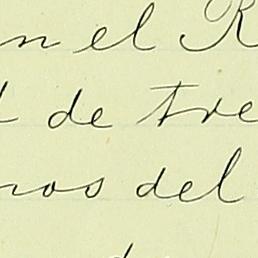 n el R
de tre
nos del